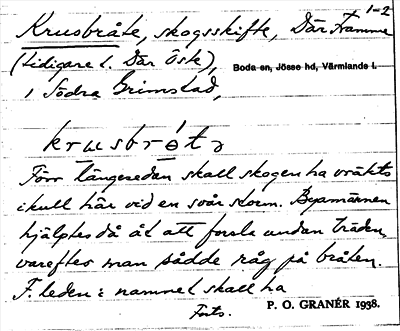 1-2
Krusbråte, skogsskifte, Där Framme
(tidigare t. Där Öste),
Boda sn, Jösse hd, Värmlands l.
i Södra Grimstad,
krusbrótə
Förr längesedan skall skogen ha vräkts
ikull här vid en svår storm. Byamännen
hjälptes då åt att forsla undan träden,
varefter man sådde råg på bråten.
F. leden i namnet skall ha
Forts.
P. O. GRANÉR 1938.